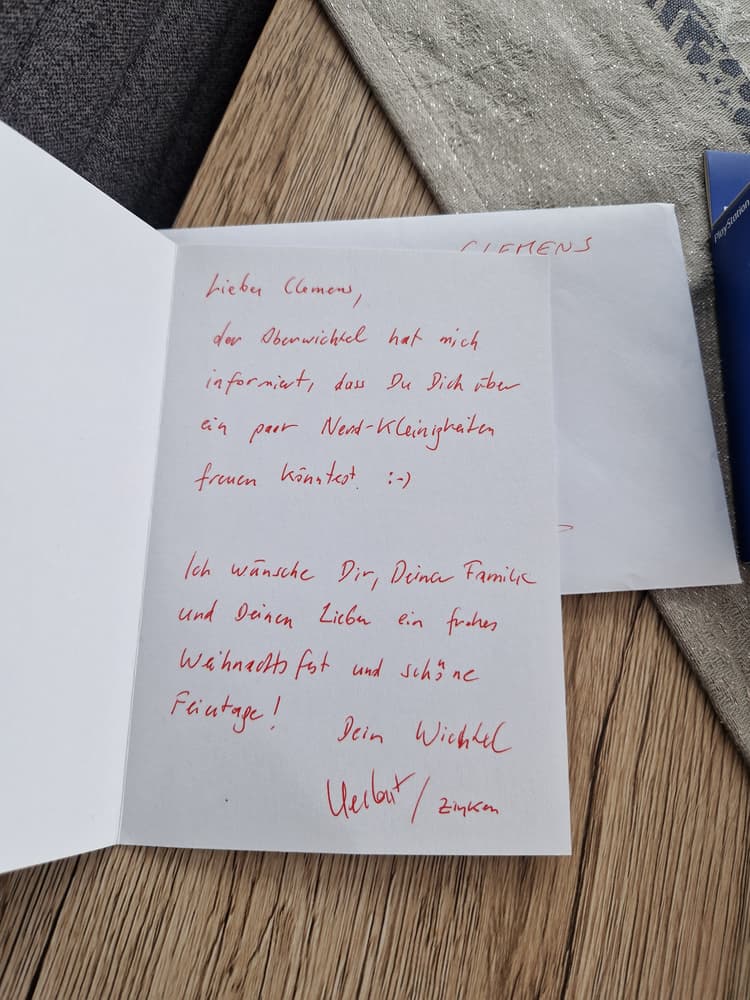 CLEMENS
PlayStation
Lieber Clemens,
der Oberwichtel hat mich
informiert, dass Du Dich über
ein paar Nerd-Kleinigkeiten
freuen könntest. :-)
Ich wünsche Dir, Deiner Familie
und Deinen Lieben ein frohes
Weihnachtsfest und schöne
Feiertage!
Dein Wichtel
Herbert / Zinken